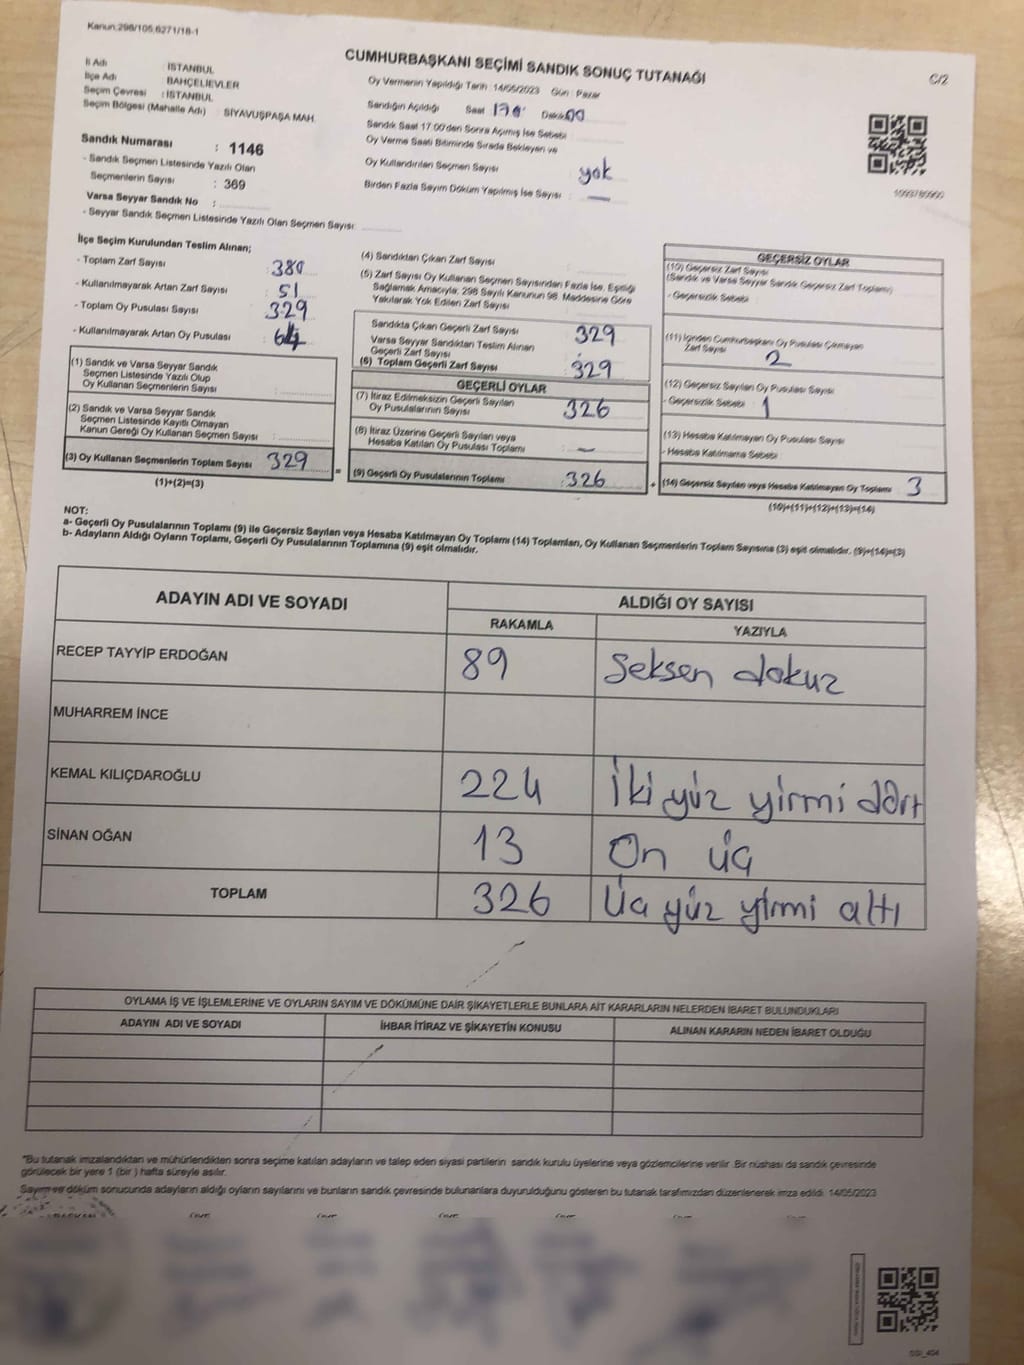 Kanun:298/105,6271/18-1
CUMHURBAŞKANI SEÇİMİ SANDIK SONUÇ TUTANAĞI
C/2
İl Adı : İSTANBUL
İlçe Adı : BAHÇELİEVLER
Seçim Çevresi : İSTANBUL
Seçim Bölgesi (Mahalle Adı) : SİYAVUŞPAŞA MAH.
Oy Vermenin Yapıldığı Tarih : 14/05/2023 Gün : Pazar
Sandığın Açıldığı Saat Dakika
Sandık Saat 17.00'den Sonra Açımış İse Sebebi
Oy Verme Saati Bitiminde Sırada Bekleyen ve
Oy Kullandırılan Seçmen Sayısı : yok
Birden Fazla Sayım Döküm Yapılmış İse Sayısı : —
Sandık Numarası : 1146
- Sandık Seçmen Listesinde Yazılı Olan
Seçmenlerin Sayısı : 369
Varsa Seyyar Sandık No :
- Seyyar Sandık Seçmen Listesinde Yazılı Olan Seçmen Sayısı:
İlçe Seçim Kurulundan Teslim Alınan;
- Toplam Zarf Sayısı : 380
- Kullanılmayarak Artan Zarf Sayısı : 51
- Toplam Oy Pusulası Sayısı : 329
- Kullanılmayarak Artan Oy Pusulası : 64
(1) Sandık ve Varsa Seyyar Sandık
Seçmen Listesinde Yazılı Olup
Oy Kullanan Seçmenlerin Sayısı :
(2) Sandık ve Varsa Seyyar Sandık
Seçmen Listesinde Kayıtlı Olmayan
Kanun Gereği Oy Kullanan Seçmen Sayısı :
(3) Oy Kullanan Seçmenlerin Toplam Sayısı 329
(1)+(2)=(3)
=
(4) Sandıktan Çıkan Zarf Sayısı :
(5) Zarf Sayısı Oy Kullanan Seçmen Sayısından Fazla İse, Eşitliği
Sağlamak Amacıyla; 298 Sayılı Kanunun 98. Maddesine Göre
Yakılarak Yok Edilen Zarf Sayısı :
Sandıkta Çıkan Geçerli Zarf Sayısı : 329
Varsa Seyyar Sandıktan Teslim Alınan
Geçerli Zarf Sayısı :
(6) Toplam Geçerli Zarf Sayısı : 329
GEÇERLİ OYLAR
(7) İtiraz Edilmeksizin Geçerli Sayılan
Oy Pusulalarının Sayısı : 326
(8) İtiraz Üzerine Geçerli Sayılan veya
Hesaba Katılan Oy Pusulası Toplamı : —
(9) Geçerli Oy Pusulalarının Toplamı : 326
+
GEÇERSİZ OYLAR
(10) Geçersiz Zarf Sayısı
(Sandık ve Varsa Seyyar Sandık Geçersiz Zarf Toplamı)
- Geçersizlik Sebebi :
(11) İçinden Cumhurbaşkanı Oy Pusulası Çıkmayan
Zarf Sayısı : 2
(12) Geçersiz Sayılan Oy Pusulası Sayısı
- Geçersizlik Sebebi : 1
(13) Hesaba Katılmayan Oy Pusulası Sayısı
- Hesaba Katılmama Sebebi :
(14) Geçersiz Sayılan veya Hesaba Katılmayan Oy Toplamı 3
(10)+(11)+(12)+(13)=(14)
NOT:
a- Geçerli Oy Pusulalarının Toplamı (9) ile Geçersiz Sayılan veya Hesaba Katılmayan Oy Toplamı (14) Toplamları, Oy Kullanan Seçmenlerin Toplam Sayısına (3) eşit olmalıdır. (9)+(14)=(3)
b- Adayların Aldığı Oyların Toplamı, Geçerli Oy Pusulalarının Toplamına (9) eşit olmalıdır.
ADAYIN ADI VE SOYADI
ALDIĞI OY SAYISI
RAKAMLA
YAZIYLA
RECEP TAYYİP ERDOĞAN 89 Seksen dokuz
MUHARREM İNCE
KEMAL KILIÇDAROĞLU 224 İki yüz yirmi dört
SİNAN OĞAN 13 On üç
TOPLAM 326 Üç yüz yirmi altı
OYLAMA İŞ VE İŞLEMLERİNE VE OYLARIN SAYIM VE DÖKÜMÜNE DAİR ŞİKAYETLERLE BUNLARA AİT KARARLARIN NELERDEN İBARET BULUNDUKLARI
ADAYIN ADI VE SOYADI
İHBAR İTİRAZ VE ŞİKAYETİN KONUSU
ALINAN KARARIN NEDEN İBARET OLDUĞU
"Bu tutanak imzalandıktan ve mühürlendikten sonra seçime katılan adayların ve talep eden siyasi partilerin sandık kurulu üyelerine veya gözlemcilerine verilir .Bir nüshası da sandık çevresinde
görülecek bir yere 1 (bir ) hafta süreyle asılır.
Sayım ve döküm sonucunda adayların aldığı oyların sayılarını ve bunların sandık çevresinde bulunanlara duyurulduğunu gösteren bu tutanak tarafımızdan düzenlenerek imza edildi. 14/05/2023